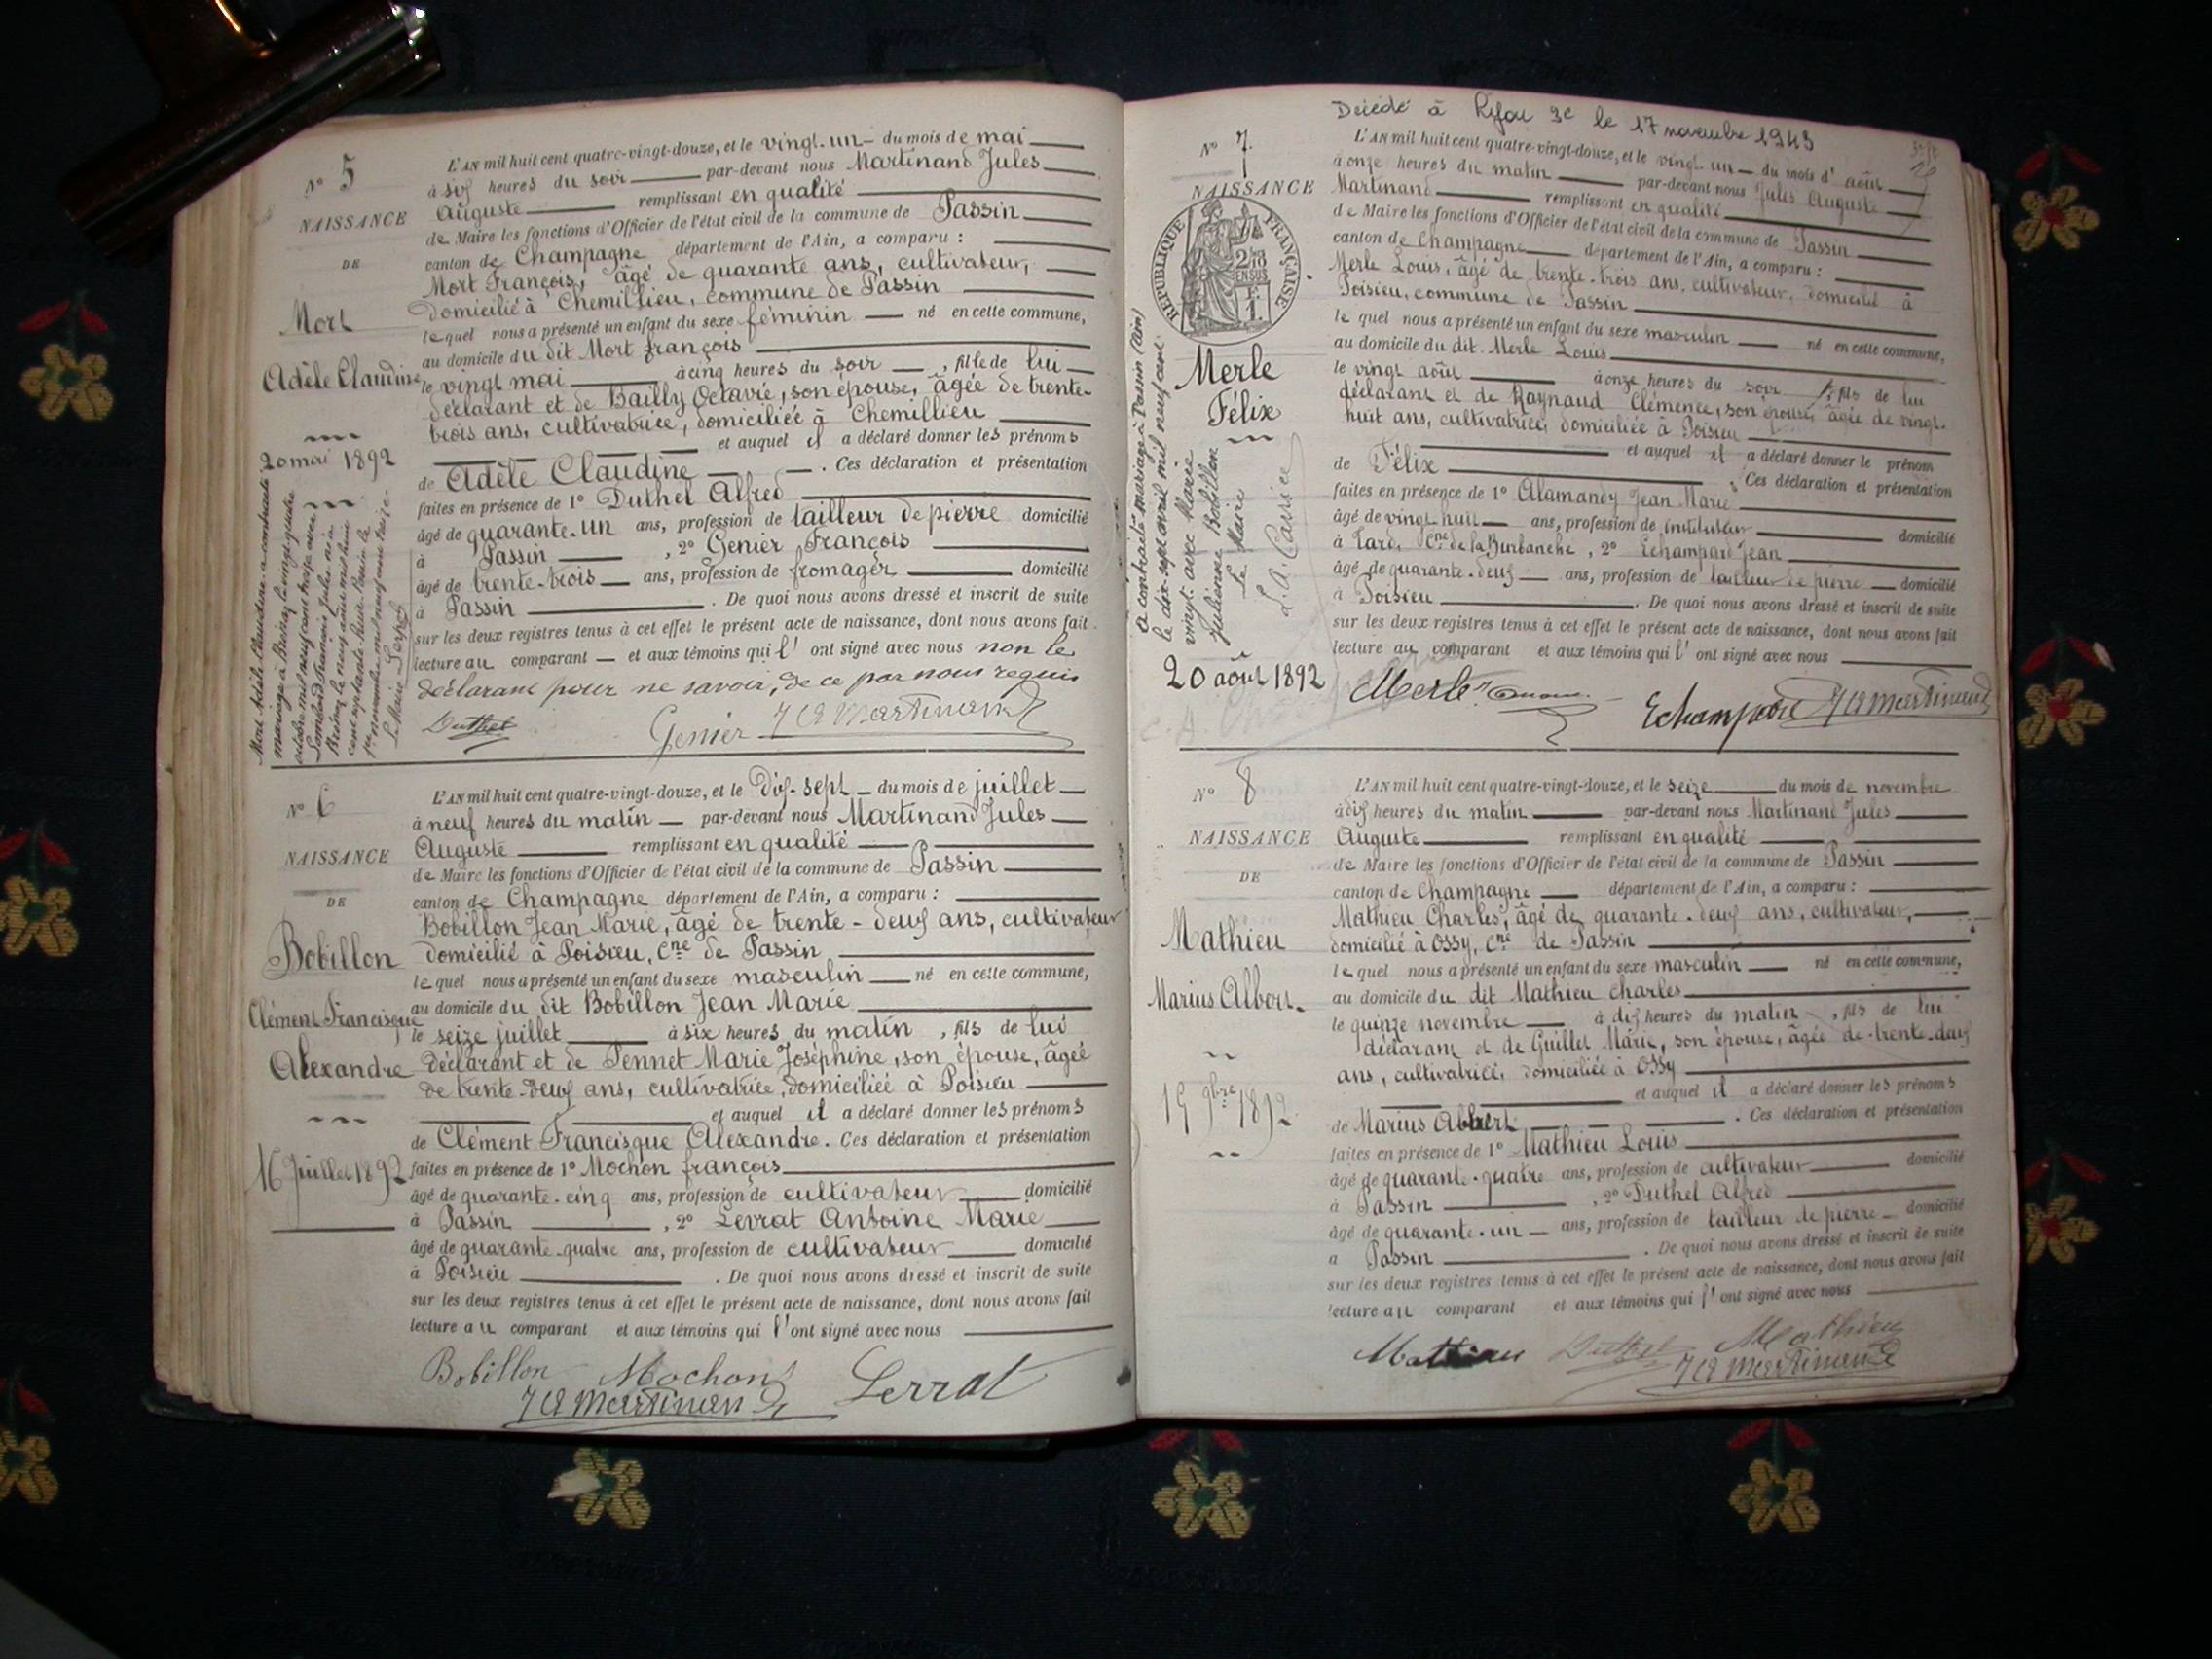 N° 5
NAISSANCE
DE
Mort
Adèle Claudine
20 mai 1892
L'AN mil huit cent quatre-vingt-douze, et le vingt-un du mois de mai
à six heures du soir par-devant nous Martinand Jules
Auguste remplissant en qualité
de Maire les fonctions d'Officier de l'état civil de la commune de Passin
canton de Champagne département de l'Ain, a comparu :
Mort François, âgé de quarante ans, cultivateur,
domicilié à Chemillieu, commune de Passin
lequel nous a présenté un enfant du sexe féminin né en cette commune,
au domicile du dit Mort François
le vingt mai à cinq heures du soir, fille de lui
déclarant et de Bailly Octavie, son épouse, âgée de trente-
trois ans, cultivatrice, domiciliée à Chemillieu
et auquel il a déclaré donner les prénoms
de Adèle Claudine. Ces déclaration et présentation
faites en présence de 1° Duthel Alfred
âgé de quarante-un ans, profession de tailleur de pierre domicilié
à Passin, 2° Genier François
âgé de trente-trois ans, profession de fromager domicilié
à Passin. De quoi nous avons dressé et inscrit de suite
sur les deux registres tenus à cet effet le présent acte de naissance, dont nous avons fait
lecture au comparant et aux témoins qui l'ont signé avec nous non le
déclarant pour ne savoir, de ce par nous requis
Duthel
Genier J A Martinand
Mort Adèle Claudine a contracté
mariage à le vingt-quatre
octobre mil neuf cent treize avec
François Jules né à
le neuf août mil huit
cent
1er novembre mil neuf cent treize
Le Maire
N° 6
NAISSANCE
DE
Bobillon
Clément Francisque
Alexandre
16 Juillet 1892
L'AN mil huit cent quatre-vingt-douze, et le Dix-sept du mois de juillet
à neuf heures du matin par-devant nous Martinand Jules
Auguste remplissant en qualité
de Maire les fonctions d'Officier de l'état civil de la commune de Passin
canton de Champagne département de l'Ain, a comparu :
Bobillon Jean Marie, âgé de trente-deux ans, cultivateur
domicilié à Poisieu, Cne de Passin
lequel nous a présenté un enfant du sexe masculin né en cette commune,
au domicile du dit Bobillon Jean Marie
le seize juillet à six heures du matin, fils de lui
déclarant et de Pennet Marie Joséphine, son épouse, âgée
de trente-deux ans, cultivatrice, domiciliée à Poisieu
et auquel il a déclaré donner les prénoms
de Clément Francisque Alexandre. Ces déclaration et présentation
faites en présence de 1° Mochon François
âgé de quarante-cinq ans, profession de cultivateur domicilié
à Passin, 2° Levrat Antoine Marie
âgé de quarante-quatre ans, profession de cultivateur domicilié
à Poisieu. De quoi nous avons dressé et inscrit de suite
sur les deux registres tenus à cet effet le présent acte de naissance, dont nous avons fait
lecture au comparant et aux témoins qui l'ont signé avec nous
Bobillon Mochon Levrat
J A Martinand
Décédé à Lyon 3e le 17 novembre 1943
N° 7
NAISSANCE
RÉPUBLIQUE FRANÇAISE
Merle
Félix
20 août 1892
L'AN mil huit cent quatre-vingt-douze, et le vingt-un du mois d'août
à onze heures du matin par-devant nous Jules Auguste
Martinand remplissant en qualité
de Maire les fonctions d'Officier de l'état civil de la commune de Passin
canton de Champagne département de l'Ain, a comparu :
Merle Louis, âgé de trente-trois ans, cultivateur, domicilié à
Poisieu, commune de Passin
lequel nous a présenté un enfant du sexe masculin né en cette commune,
au domicile du dit Merle Louis
le vingt août à onze heures du soir, fils de lui
déclarant et de Raynaud Clémence, son épouse, âgée de vingt-
huit ans, cultivatrice, domiciliée à Poisieu
et auquel il a déclaré donner le prénom
de Félix. Ces déclaration et présentation
faites en présence de 1° Alamandy Jean Marie
âgé de vingt huit ans, profession de instituteur domicilié
à Lard, Cne de la Burbanche, 2° Echampard Jean
âgé de quarante-deux ans, profession de tailleur de pierre domicilié
à Poisieu. De quoi nous avons dressé et inscrit de suite
sur les deux registres tenus à cet effet le présent acte de naissance, dont nous avons fait
lecture au comparant et aux témoins qui l'ont signé avec nous
Merle Echampard J A Martinand
a contracté mariage à Passin (Ain)
le dix sept avril mil neuf cent
vingt avec Marie
Julienne Bobillon
Le Maire
N° 8
NAISSANCE
DE
Mathieu
Marius Albert
15 9bre 1892
L'AN mil huit cent quatre-vingt-douze, et le seize du mois de novembre
à dix heures du matin par-devant nous Martinand Jules
Auguste remplissant en qualité
de Maire les fonctions d'Officier de l'état civil de la commune de Passin
canton de Champagne département de l'Ain, a comparu :
Mathieu Charles, âgé de quarante-deux ans, cultivateur,
domicilié à Ossy, Cne de Passin
lequel nous a présenté un enfant du sexe masculin né en cette commune,
au domicile du dit Mathieu Charles
le quinze novembre à dix heures du matin, fils de lui
déclarant et de Guillet Marie, son épouse, âgée de trente-deux
ans, cultivatrice, domiciliée à Ossy
et auquel il a déclaré donner les prénoms
de Marius Albert. Ces déclaration et présentation
faites en présence de 1° Mathieu Louis
âgé de quarante-quatre ans, profession de cultivateur domicilié
à Passin, 2° Duthel Alfred
âgé de quarante-un ans, profession de tailleur de pierre domicilié
à Passin. De quoi nous avons dressé et inscrit de suite
sur les deux registres tenus à cet effet le présent acte de naissance, dont nous avons fait
lecture au comparant et aux témoins qui l'ont signé avec nous
Mathieu Duthel Mathieu
J A Martinand